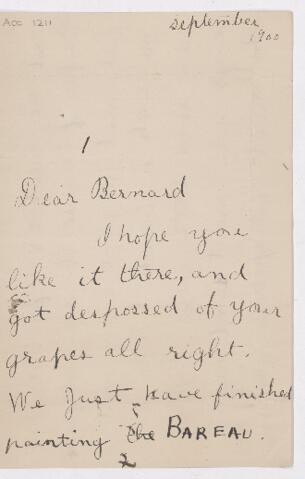 Acc 1211
september
1900
1
Dear Bernard
I hope you
like it there, and
got despossed of your
grapes all right.
We Just have finished
painting the BAREAU.
2